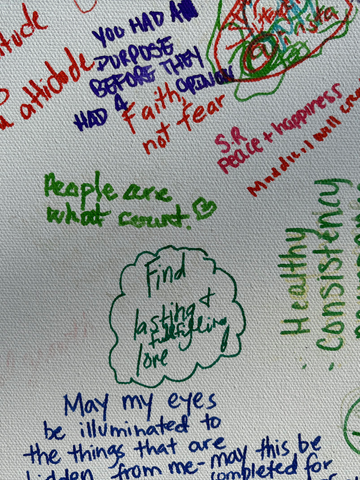 attitude
YOU HAD A
PURPOSE
BEFORE THEY
HAD A OPINION
Faith,
not fear
S.R
peace + happiness
People are
what count.
Healthy
Consistency
Find
lasting +
fulfilling
love
May my eyes
be illuminated to
the things that are
hidden from me - may this be
completed for